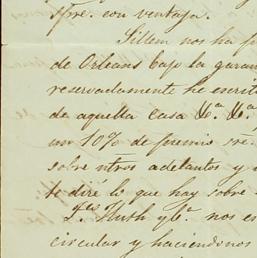 spre. con ventaja.
Sillem nos ha
de Orleans bajo la garan
reservadamente he escrit
de aquella casa Va. Va.
un 10% de premio
sobre ntros adelantos y
te diré lo que hay sobre
Fco Huth y Ca. nos en
circular y haciéndonos